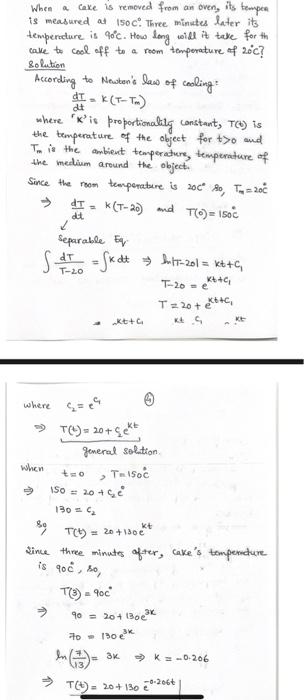 When a cake is removed from an oven, its tempera
is measured at 150C°. Three minutes later its
temperature is 90°C. How long will it take for th
cake to cool off to a room temperature of 20°C?
Solution
According to Newton's law of cooling:
dT/dt = K(T-Tm)
where "K" is proportionality constant, T(t) is
the temperature of the object for t>0 and
Tm is the ambient temperature, temperature of
the medium around the object.
Since the room temperature is 20C° so, Tm=20C°
⇒ dT/dt = K(T-20) and T(0)=150C°
Separable Eq.
∫ dT/(T-20) = ∫ K dt ⇒ ln|T-20| = Kt+C₁
T-20 = e^(Kt+C₁)
T = 20 + e^(Kt+C₁)
where C₂ = e^C₁ ④
⇒ T(t) = 20 + C₂e^(Kt)
general solution.
When t=0, T=150C°
⇒ 150 = 20 + C₂e°
130 = C₂
So T(t) = 20 + 130e^(Kt)
Since three minutes after, cake's temperature
is 90C°, so,
T(3) = 90C°
⇒ 90 = 20 + 130e^(3K)
70 = 130e^(3K)
ln(7/13) = 3K ⇒ K = -0.206
⇒ T(t) = 20 + 130 e^(-0.206t)